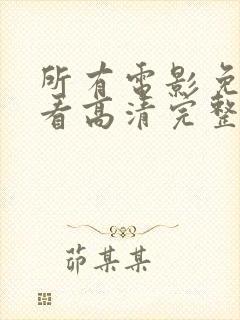 所有电影免
看高清完整
茆某某